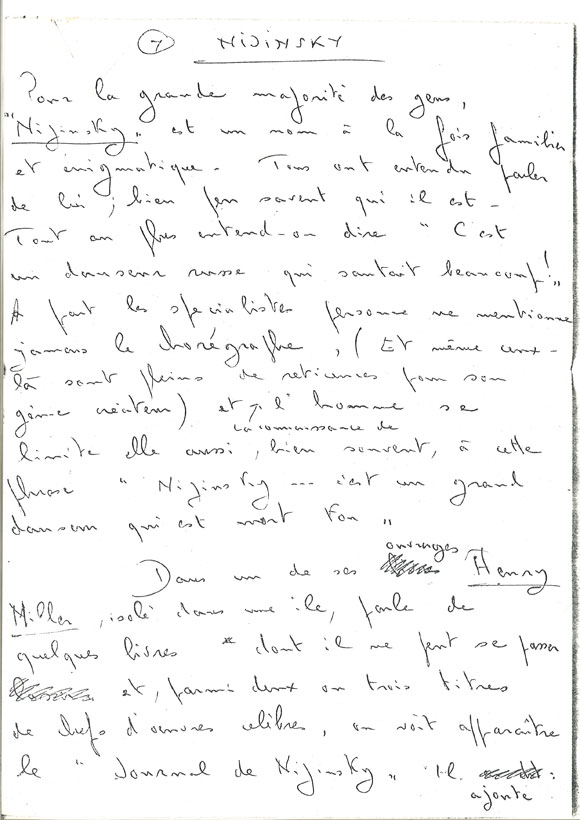 1 NIJINSKY
Pour la grande majorité des gens,
"Nijinsky" est un nom à la fois familier
et énigmatique. Tous ont entendu parler
de lui ; bien peu savent qui il est.
Tout au plus entend-on dire " C'est
un danseur russe qui sautait beaucoup!"
A part les spécialistes personne ne mentionne
jamais le chorégraphe, (Et même ceux-
là sont pleins de reticences pour son
génie créateur) et l'homme se
la connaissance de
limite elle aussi, bien souvent, à cette
phrase " Nijinsky --- c'est un grand
danseur qui est mort fou "
Dans un de ses ouvrages Henry
Miller, isolé dans une île, parle de
quelques livres * dont il ne peut se passer
et, parmi deux ou trois titres
de chefs d'oeuvres célèbres, on voit apparaître
le " Journal de Nijinsky " Il :
ajoute